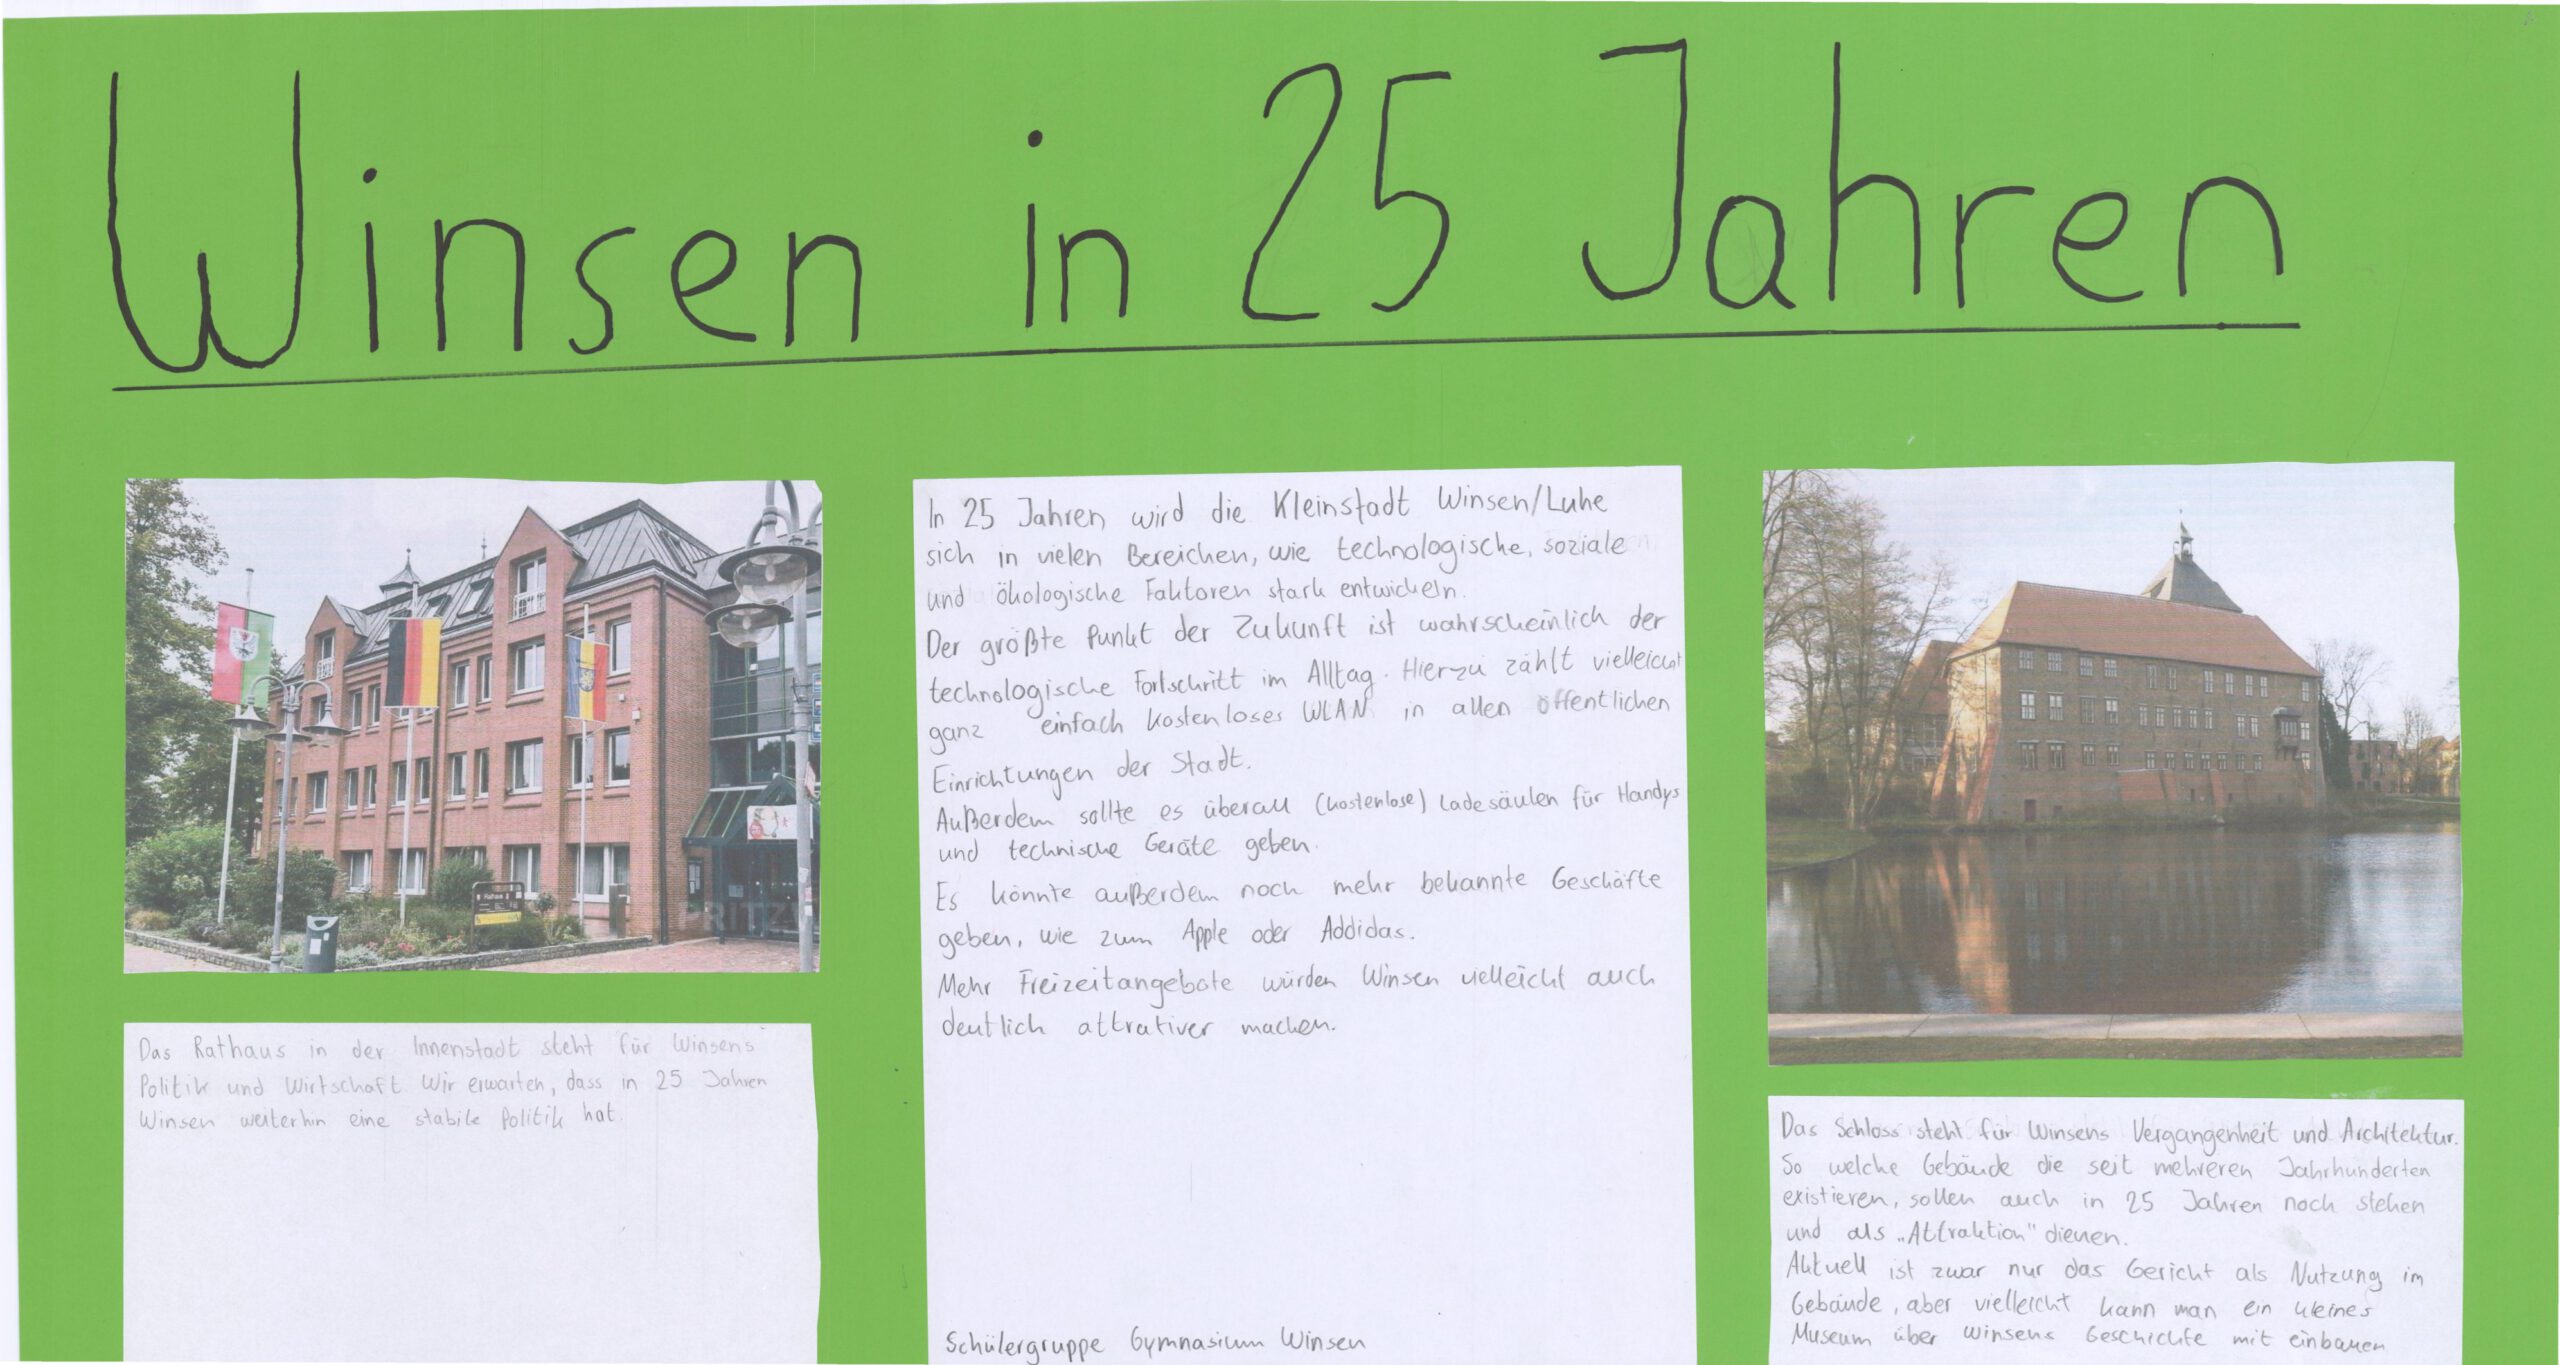 Winsen in 25 Jahren
Rathaus
Das Rathaus in der Innenstadt steht für Winsens
Politik und Wirtschaft. Wir erwarten, dass in 25 Jahren
Winsen weiterhin eine stabile Politik hat.
In 25 Jahren wird die Kleinstadt Winsen/Luhe
sich in vielen Bereichen, wie technologische, soziale
und ökologische Faktoren stark entwickeln.
Der größte Punkt der Zukunft ist wahrscheinlich der
technologische Fortschritt im Alltag. Hierzu zählt vielleicht
ganz einfach kostenloses WLAN in allen öffentlichen
Einrichtungen der Stadt.
Außerdem sollte es überall (kostenlose) Ladesäulen für Handys
und technische Geräte geben.
Es könnte außerdem noch mehr bekannte Geschäfte
geben, wie zum Apple oder Addidas.
Mehr Freizeitangebote würden Winsen vielleicht auch
deutlich attrativer machen.
Schülergruppe Gymnasium Winsen
Das Schloss steht für Winsens Vergangenheit und Architektur.
So welche Gebäude die seit mehreren Jahrhunderten
existieren, sollen auch in 25 Jahren noch stehen
und als „Attraktion" dienen.
Aktuell ist zwar nur das Gericht als Nutzung im
Gebäude, aber vielleicht kann man ein kleines
Museum über Winsens Geschichte mit einbauen